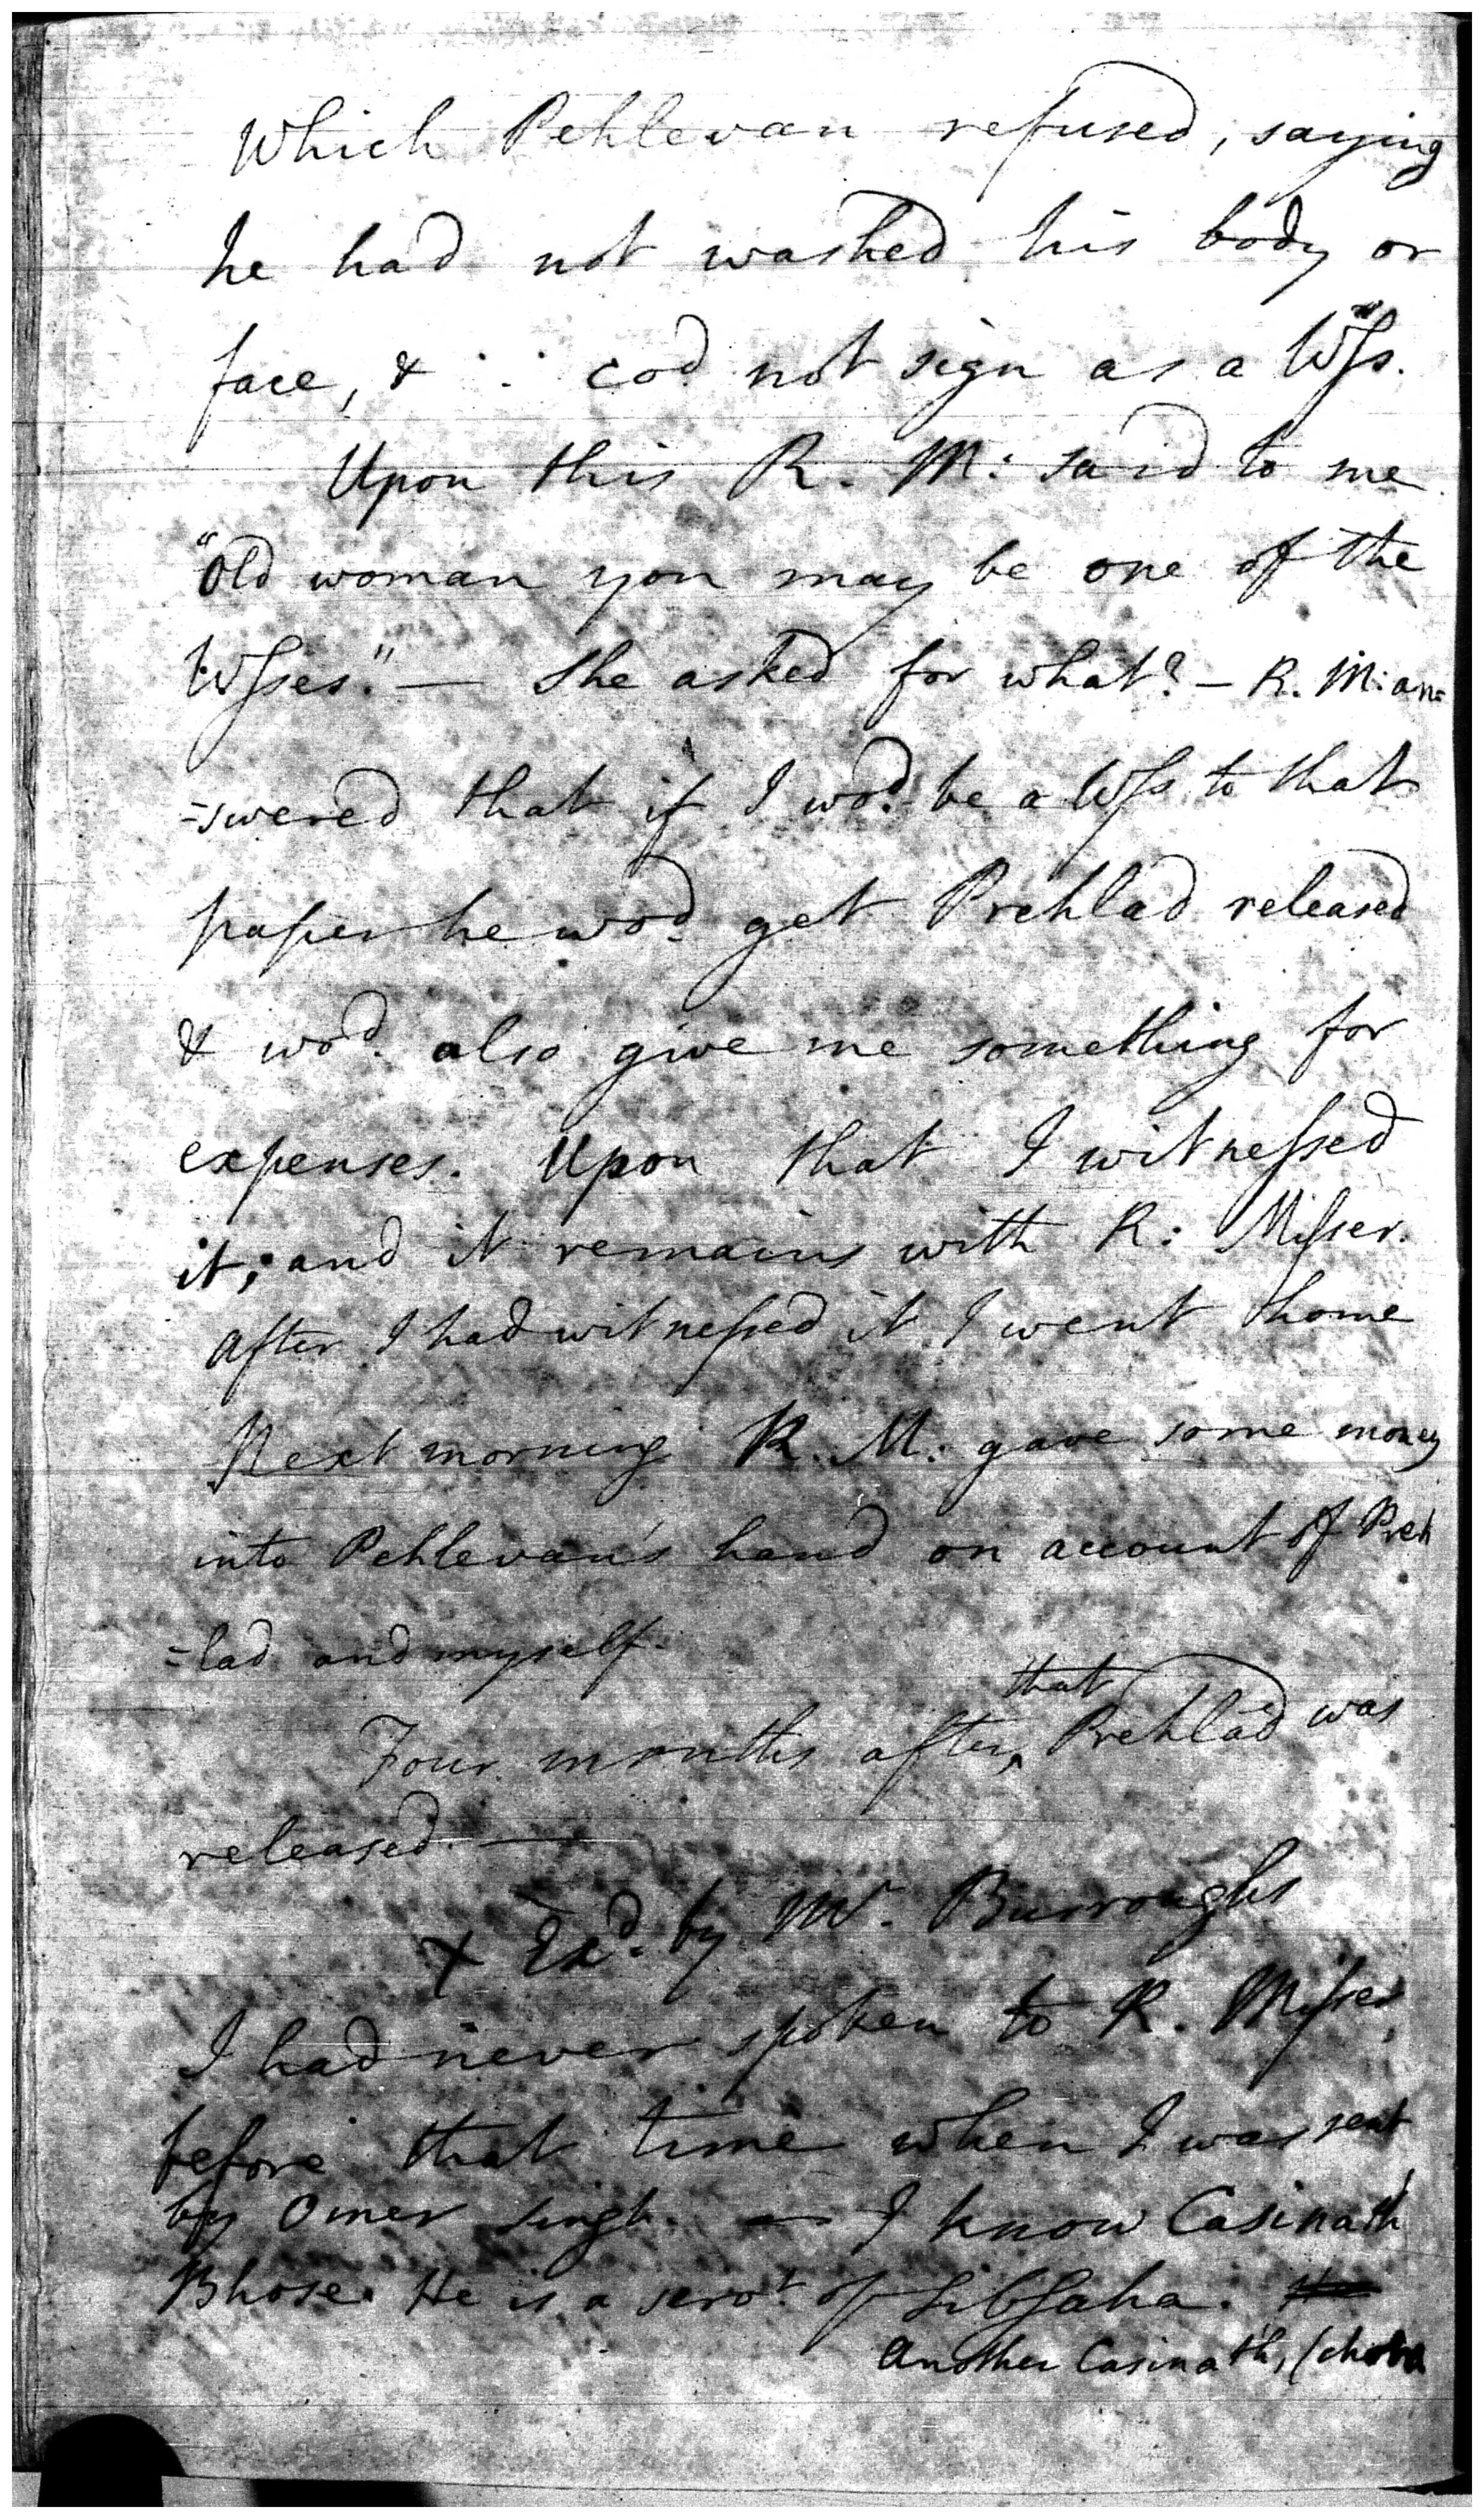 Which Pehlevan refused, saying
he had not washed his body or
face, & ∴ cod. not sign as a Wſs.
Upon this R. M: said to me
"Old woman you may be one of the
Wſses." — She asked for what? — R. M: an=
=swered that if I wod. be a Wſs to that
paper he wod. get Prehlad released
& wod. also give me something for
expenses. Upon that I witneſsed
it; and it remains with R: Miſser.
After I had witneſsed it I went home
Next morning R. M: gave some money
into Pehlevan's hand on account of Preh
=lad and myself.
Four months after ^that Prehlad was
released. —
X Exd. by Mr. Burroughs
I had never spoken to R. Miſser,
before that time when I was sent
by Omer Singh. — I know Casinath
Bhose. He is a servt. of Sibsaha.
Another Casinath, (choba